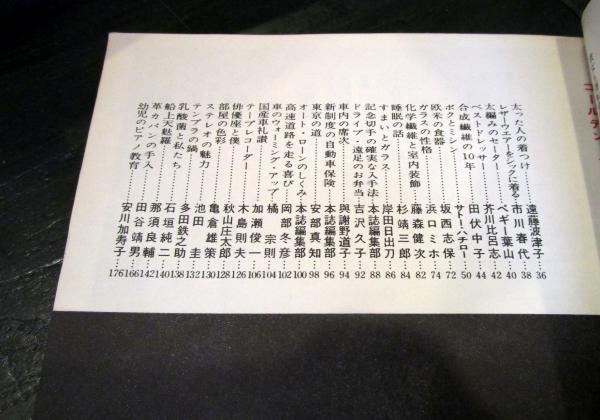 ゴールデン
太った人の着つけ 遠藤波津子…36
レザーウェアーをシックに着る 市川春代…38
太編みのセーター ペギー葉山…40
ベスト・ドレッサー 芥川比呂志…42
合成繊維の10年 田伏中子…44
ボクとミシン サトー・ハチロー…50
欧米の食器 坂西志保…72
ガラスの性格 浜口ミホ…74
化学繊維と室内装飾 藤森健次…82
睡眠の話 杉靖三郎…84
すまいとガラス 岸田日出刀…86
記念切手の確実な入手法 本誌編集部…88
ドライブ・遠足のお弁当 吉沢久子…92
車内の席次 與謝野道子…94
新制度の自動車保険 本誌編集部…96
東京の道 安部真知…98
オート・ローンのしくみ 本誌編集部…100
高速道路を走る喜び 岡部冬彦…102
車のウォーミング・アップ 橘宗則…104
国産車礼讃 加瀬俊一…106
テープレコーダー 木島則夫…126
俳優と僕 秋山庄太郎…128
部屋の色彩 亀倉雄策…130
ステレオの魅力 池田圭…132
テンプラの鍋 多田鉄之助…138
乳酸菌と私たち 石垣純二…140
船上天麩羅 那須良輔…142
革カバンの手入 田谷靖男…166
幼児のピアノ教育 安川加寿子…176